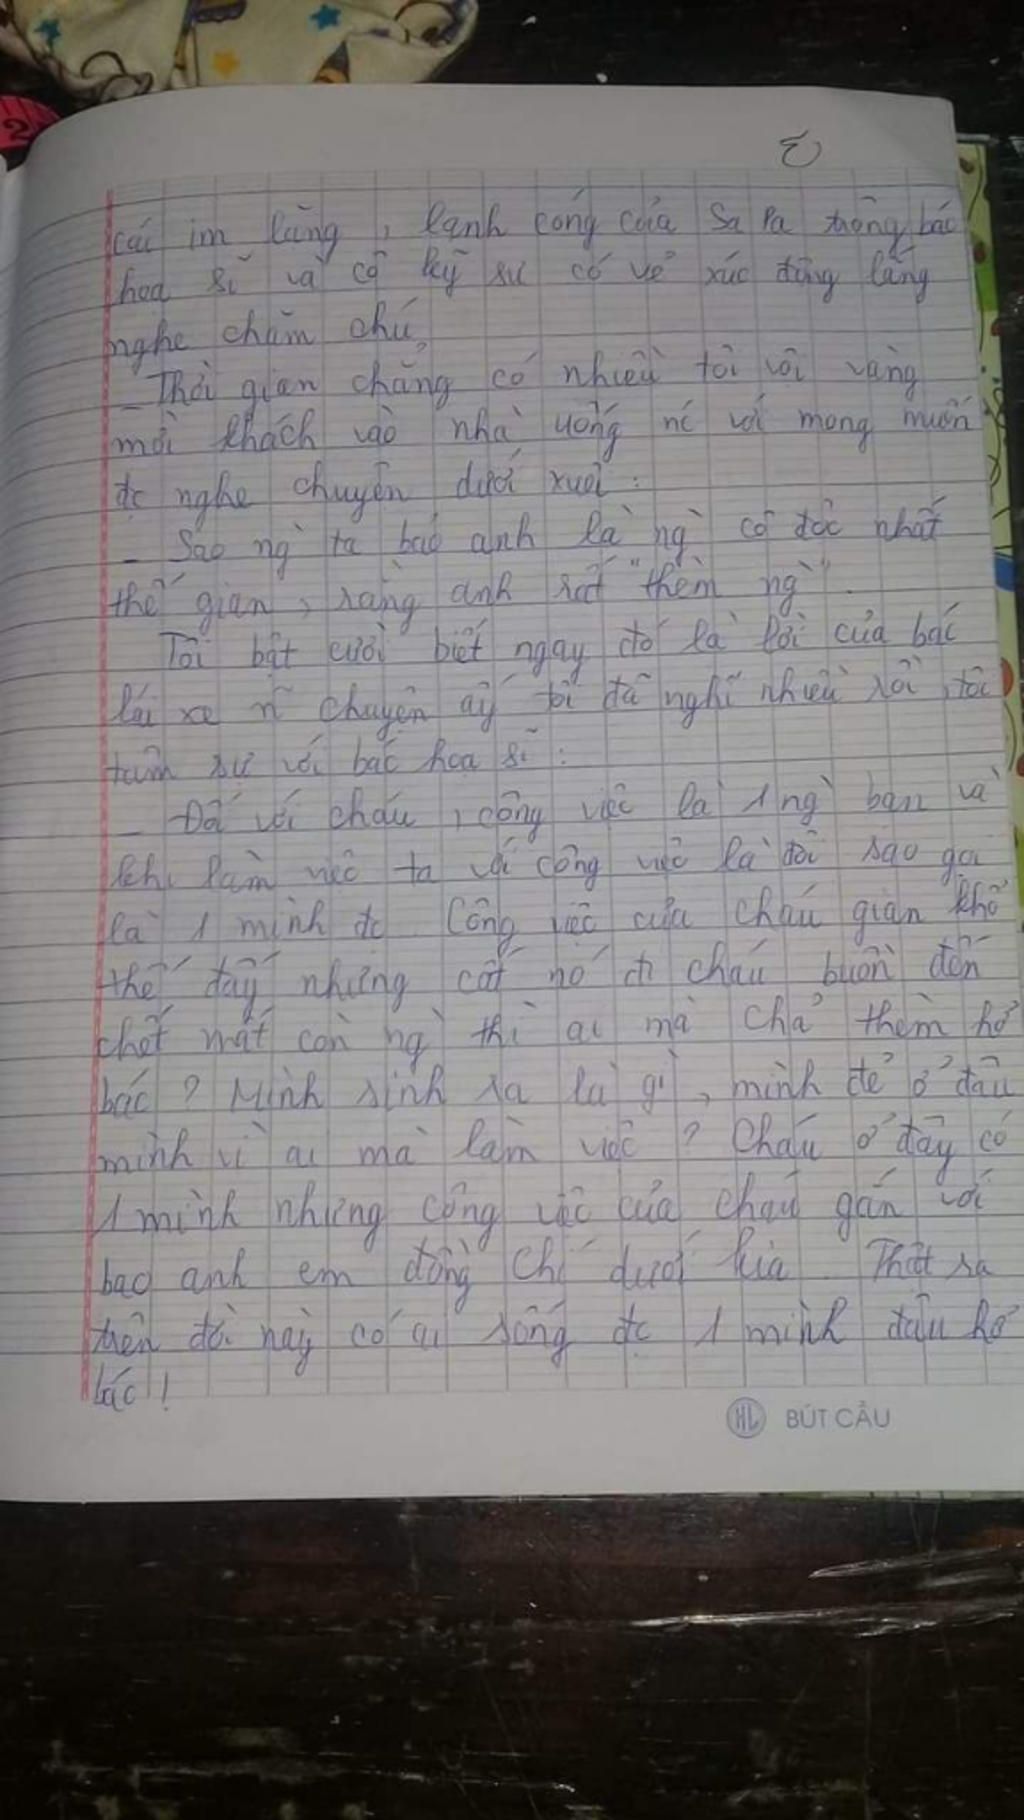 3
cái im lặng, lạnh cóng của Sa Pa trông bác
hoạ sĩ và cô kỹ sư có vẻ xúc động lắng
nghe chăm chú.
- Thời gian chẳng có nhiều tôi vội vàng
mời khách vào nhà uống nc với mong muốn
đc nghe chuyện dưới xuôi:
- Sao ng ta bảo anh là ng cô độc nhất
thế gian, rằng anh rất "thèm ng".
Tôi bật cười biết ngay đó là lời của bác
lái xe n chuyện ấy tôi đã nghĩ nhiều rồi, tôi
tâm sự với bác hoạ sĩ:
- Đối với cháu, công việc là 1 ng bạn và
khi làm việc ta với công việc là đôi sao gọi
là 1 mình đc Công việc của cháu gian khổ
thế đấy nhưng cất nó đi cháu buồn đến
chết mất còn ng thì ai mà chả thèm hở
bác? Mình sinh ra là gì, mình đẻ ở đâu
mình vì ai mà làm việc? Cháu ở đây có
1 mình nhưng công việc của cháu gắn với
bao anh em đồng chí dưới kia Thật ra
trên đời này có ai sống đc 1 mình đâu hở
bác!
HL BÚT CẦU
2